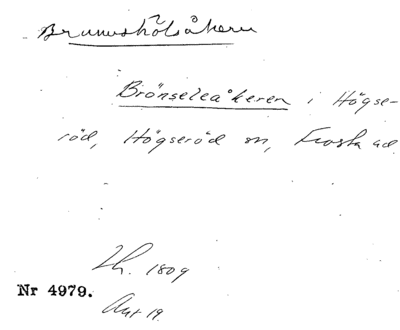 Brunnshölsåkern
Brönseleåkeren i Högse-
röd, Högseröd sn, Frosta hd
Lh. 1809
Nr 4979.
Akt 19